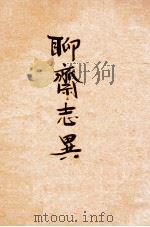 聊齋志異
mtoou.info